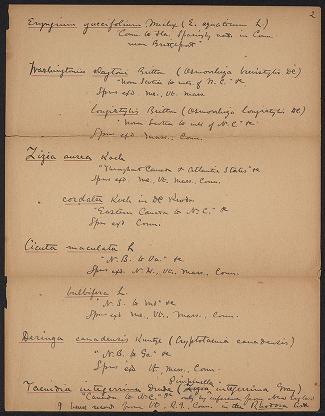 2
Eryngium yuccifolium Michx (E. aquaticum L)
Conn to Fla. Sparingly nat. in Conn
near Bridgeport"
Washingtonia claytoni Britton (Osmorhiza brevistylis DC)
"Nova Scotia to mts. of N.C." &c
Spms exd Me., Vt. Mass
longistylis Britton (Osmorhiza longistylis DC)
"Nova Scotia to mts of N.C." &c
Spms exd Mass., Conn.
Zizia aurea Koch
"Throughout Canada & Atlantic States" &c
Spms exd. Me, Vt. Mass, Conn.
cordata Koch in DC
"Eastern Canada to N.C." &c
Spms exd Conn.
Cicuta maculata L
"N.B. to Va." &c
Spms exd. N.H., Vt., Mass., Conn.
bulbifera L.
"N.S. to Md" &c
Spms exd Me., Vt., Mass., Conn.
Deringa canadensis Kuntze (Cryptotaenia canadensis)
"N.B. to Ga" &c
Spms exd Vt., Mass., Conn.
Pimpinella
Taenidia integerrima Drude (Zizia integerrima Gray)
"Canada to N.C." &c only by inference from New England
I have record from Vt., R.I. Conn. in the